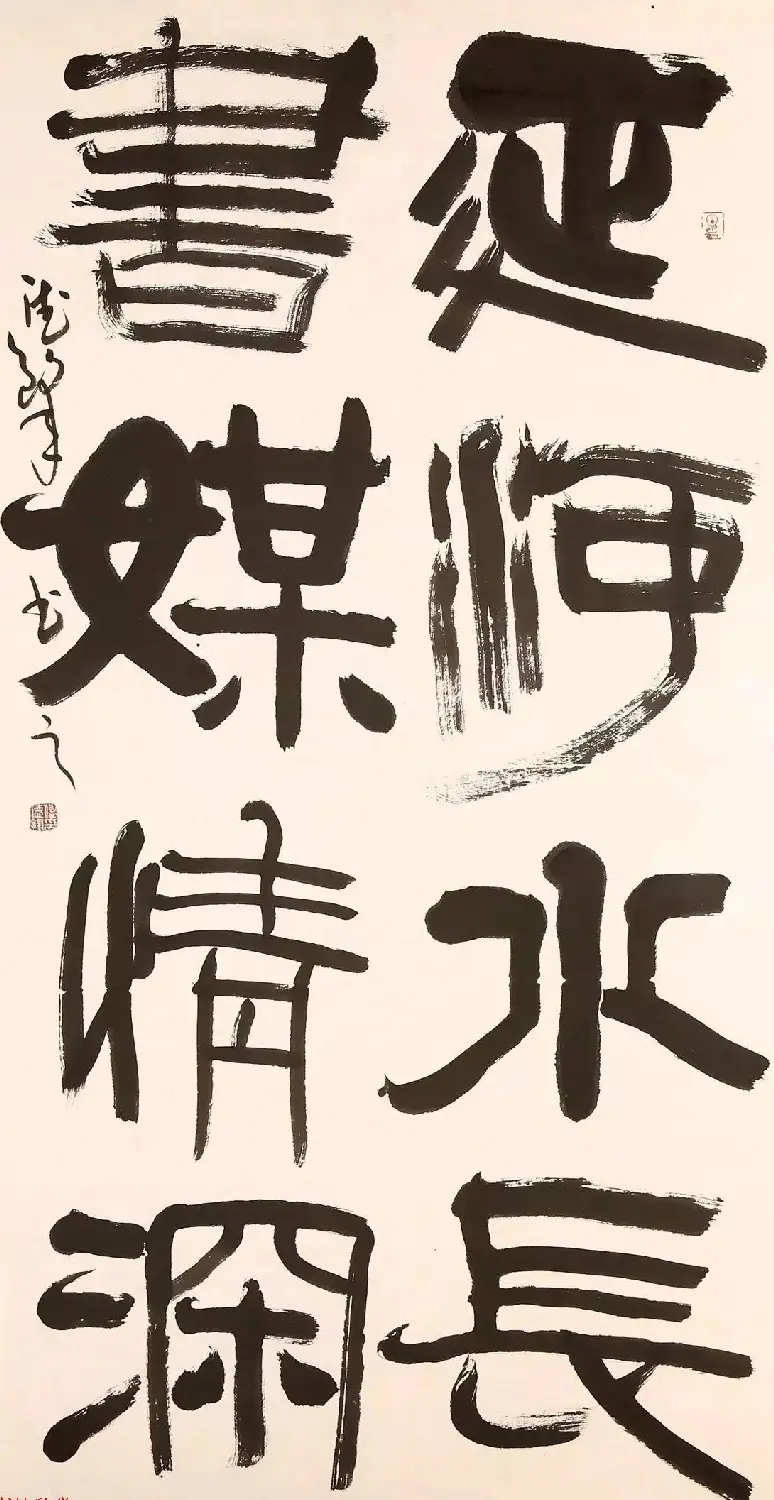 延河水長
書媒情深